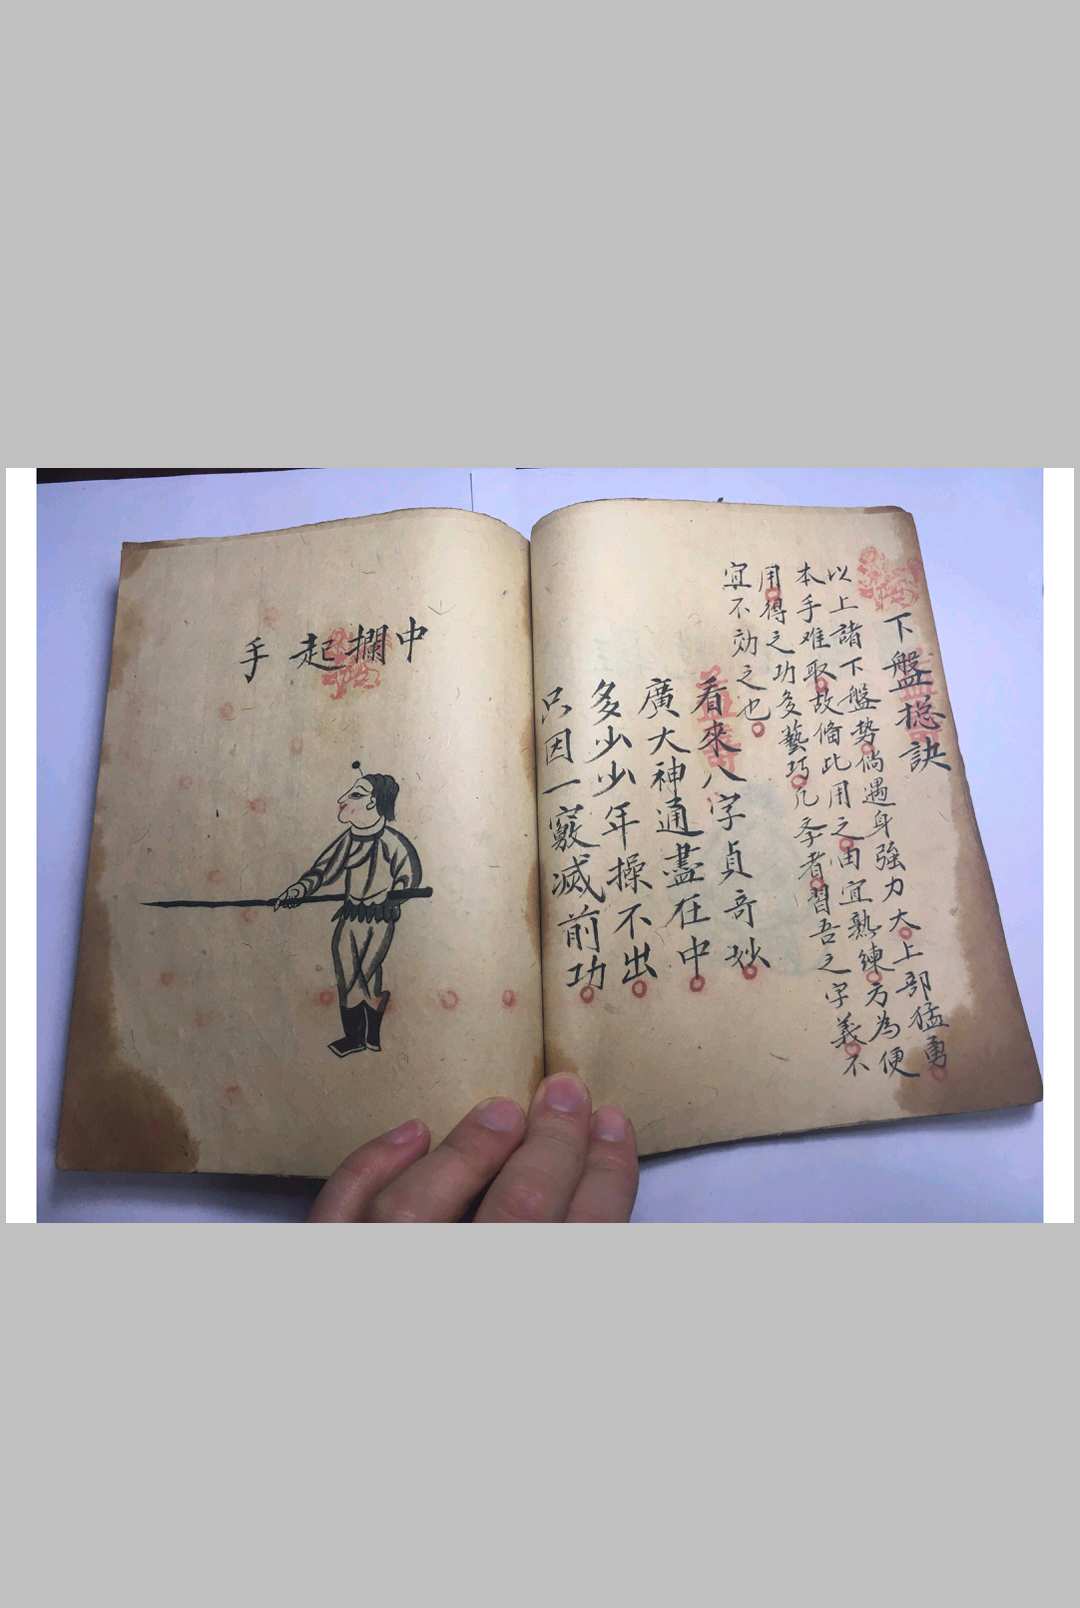 下盤捴訣
以上諸下盤势倘遇身強力大上部猛勇
本手难取故俻此用之由宜熟練方為便
用得之功多藝巧凡斈者習吾之字義不
宜不効之也
看來八字貞奇妙
廣大神通盡在中
多少少年操不出
只因一竅滅前功
中攔起手